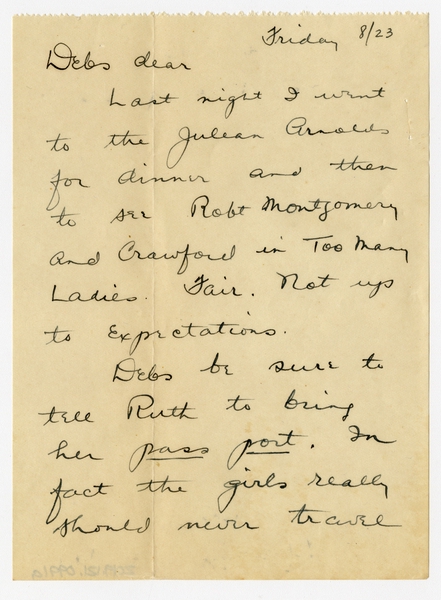 Friday 8/23
Debs dear
Last night I went
to the Julean Arnolds
for dinner and then
to see Robt Montgomery
and Crawford in Too Many
Ladies. Fair. Not up
to Expectations.
Debs be sure to
tell Ruth to bring
her pass port. In
fact the girls really
should never travel